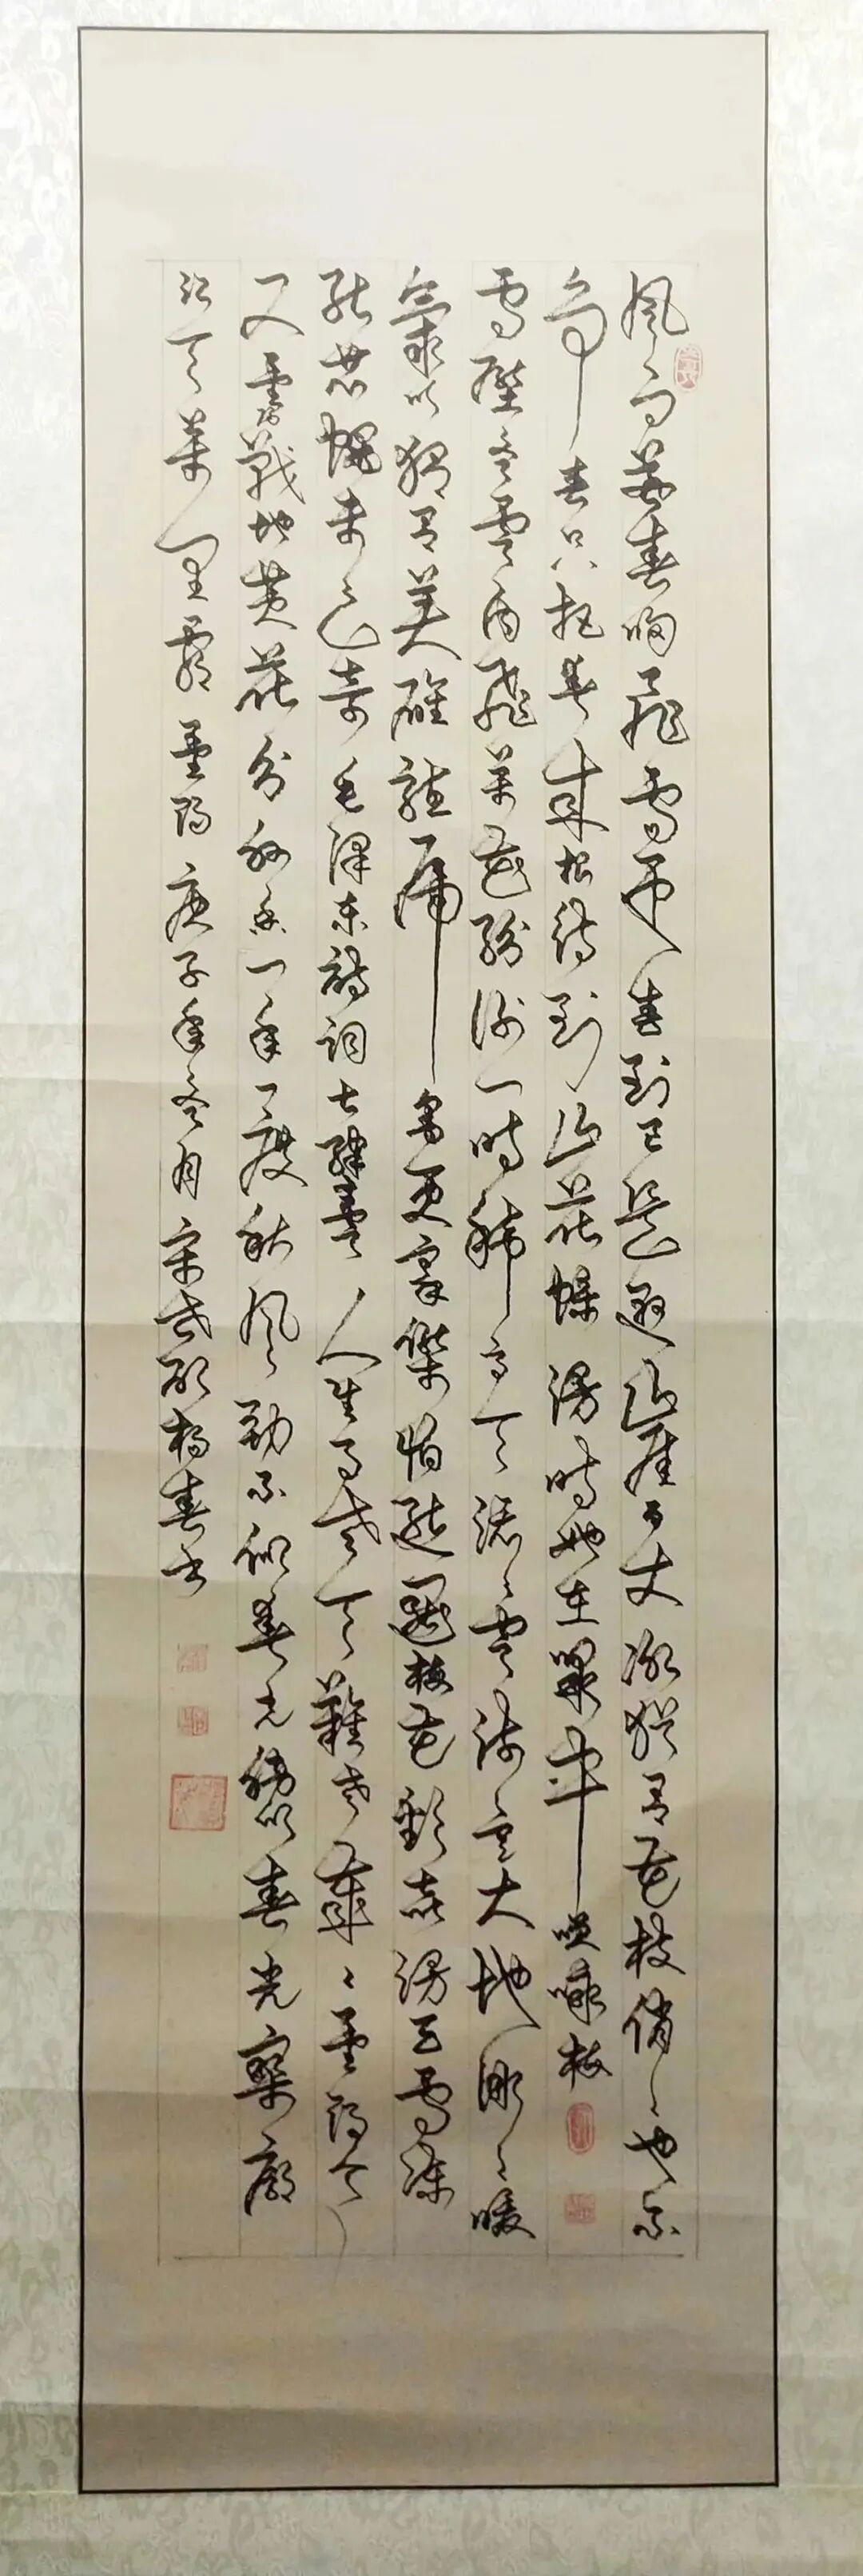 風雨送春歸飛雪迎春到已是懸崖百丈冰猶有花枝俏〻也不
爭春只把春來報待到山花爛漫時她在叢中笑詠梅
雪壓冬雲白飛萬花紛謝一時稀高天滾〻寒流急大地微〻暖
氣吹獨有英雄驅虎豹更無豪傑怕熊羆梅花歡喜漫天雪凍
死蒼蠅未足奇毛澤東詩詞七律冬雲人生易老天難老歲〻重陽今
又重陽戰地黃花分外香一年一度秋風勁不似春光勝似春光寥廓
江天萬里霜重陽庚子年冬月宋楊春书